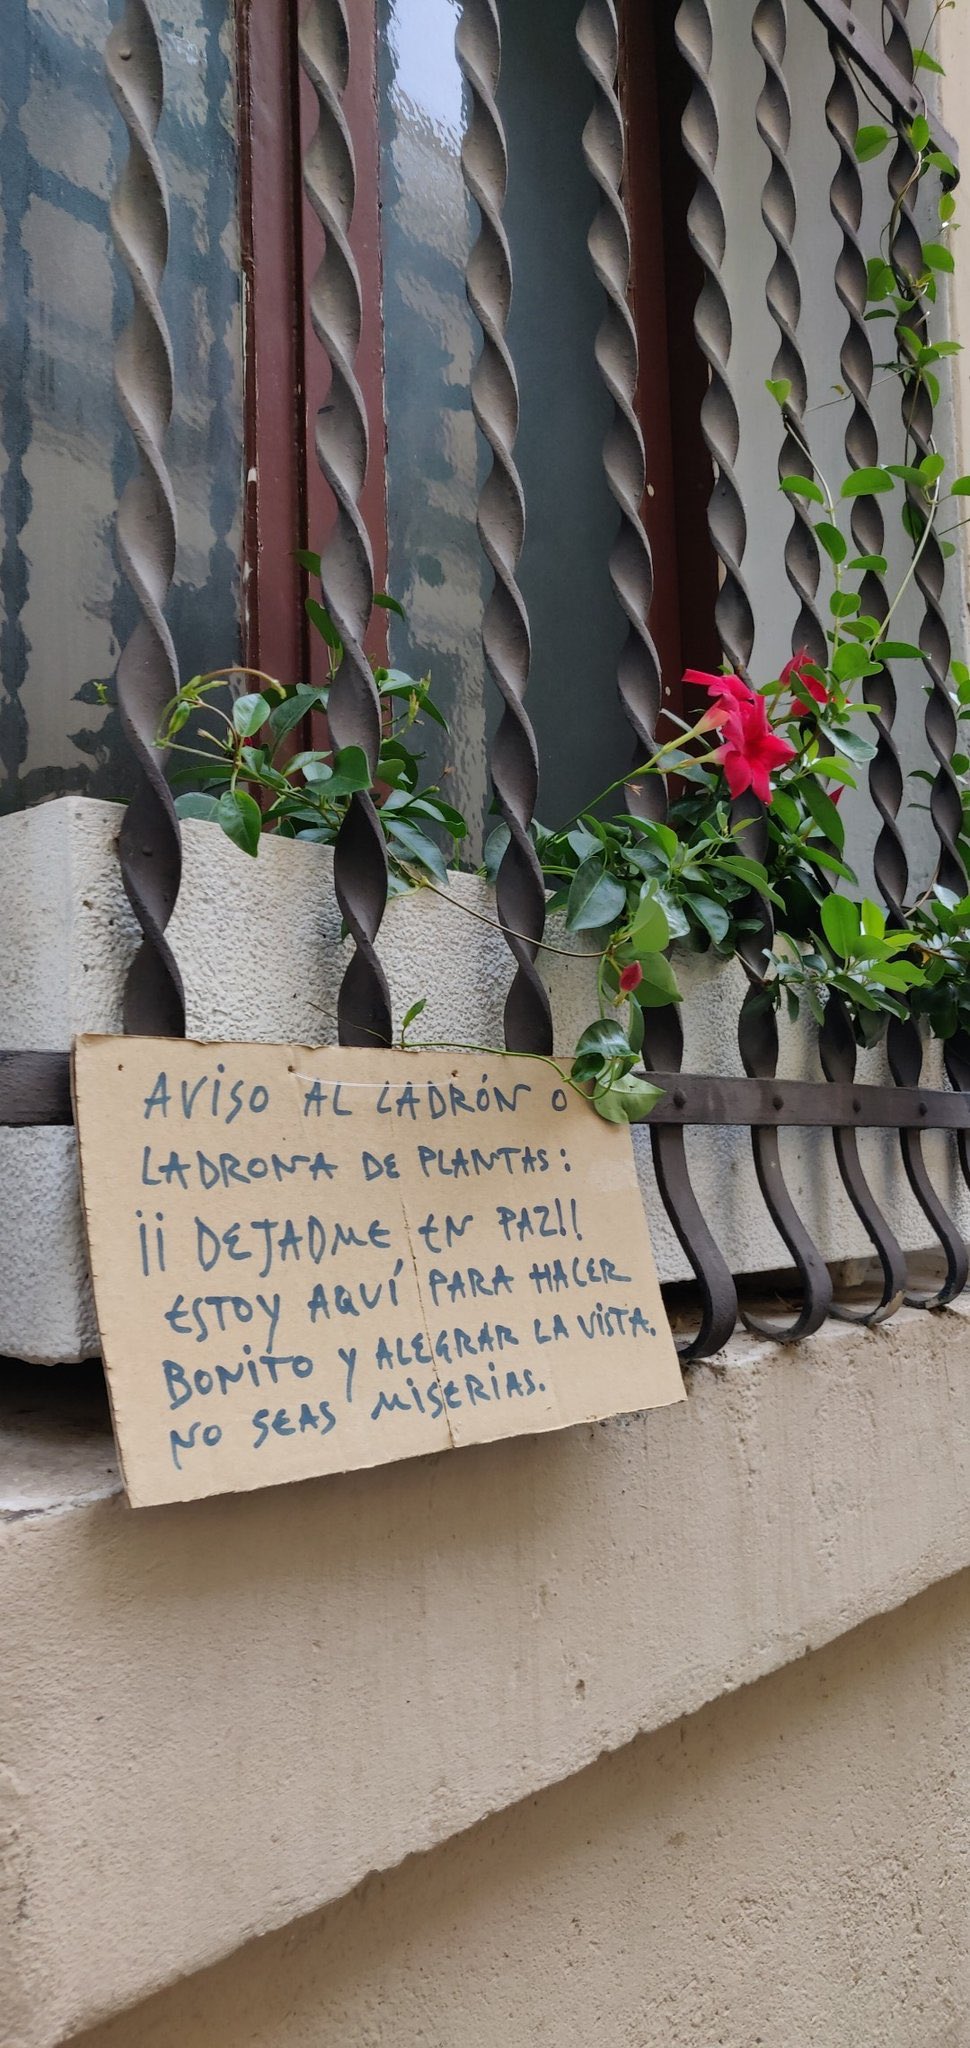 AVISO AL LADRÓN O
LADRONA DE PLANTAS:
¡¡ DEJADME EN PAZ!!
ESTOY AQUÍ PARA HACER
BONITO Y ALEGRAR LA VISTA.
NO SEAS MISERIAS.